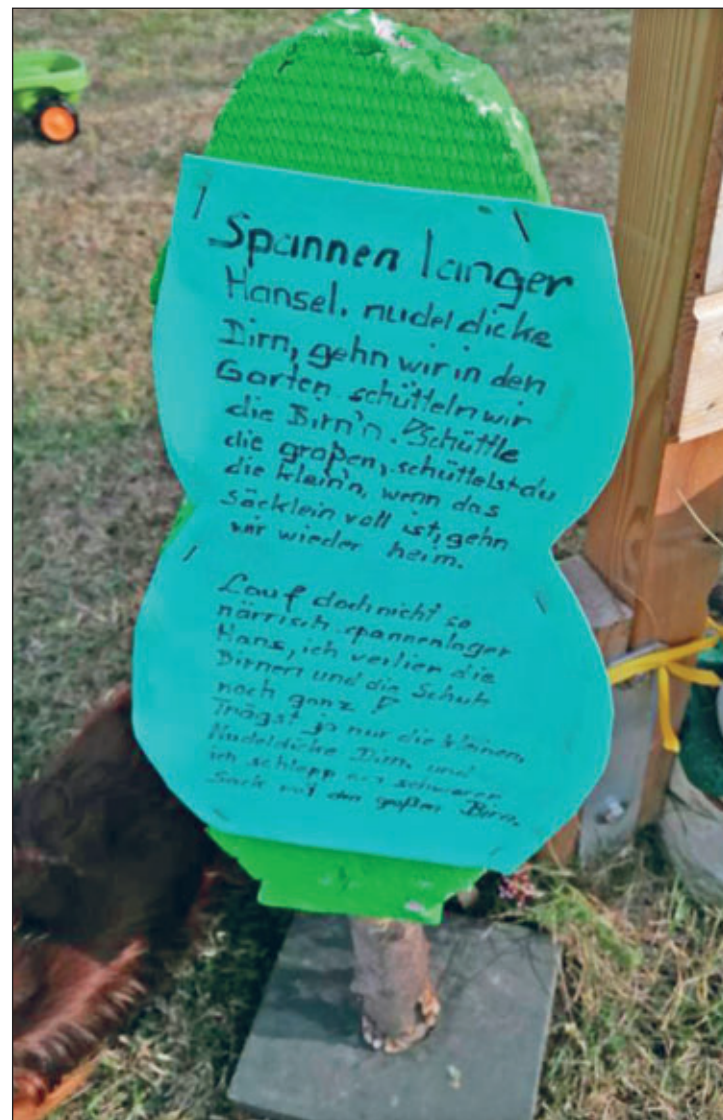 Spannen langer
Hansel, nudeldicke
Dirn, gehn wir in den
Garten schütteln wir
die Birn'n. Schüttle
die großen, schüttelst du
die klein'n, wenn das
Säcklein voll ist, gehn
wir wieder heim.
Lauf doch nicht so
närrisch spannenlager
Hans, ich verlier die
Birnen und die Schuh
noch ganz!
Trägst ja nur die kleinen,
Nudeldicke Dirn, und
ich schlepp den schweren
Sack mit den großen Birn.